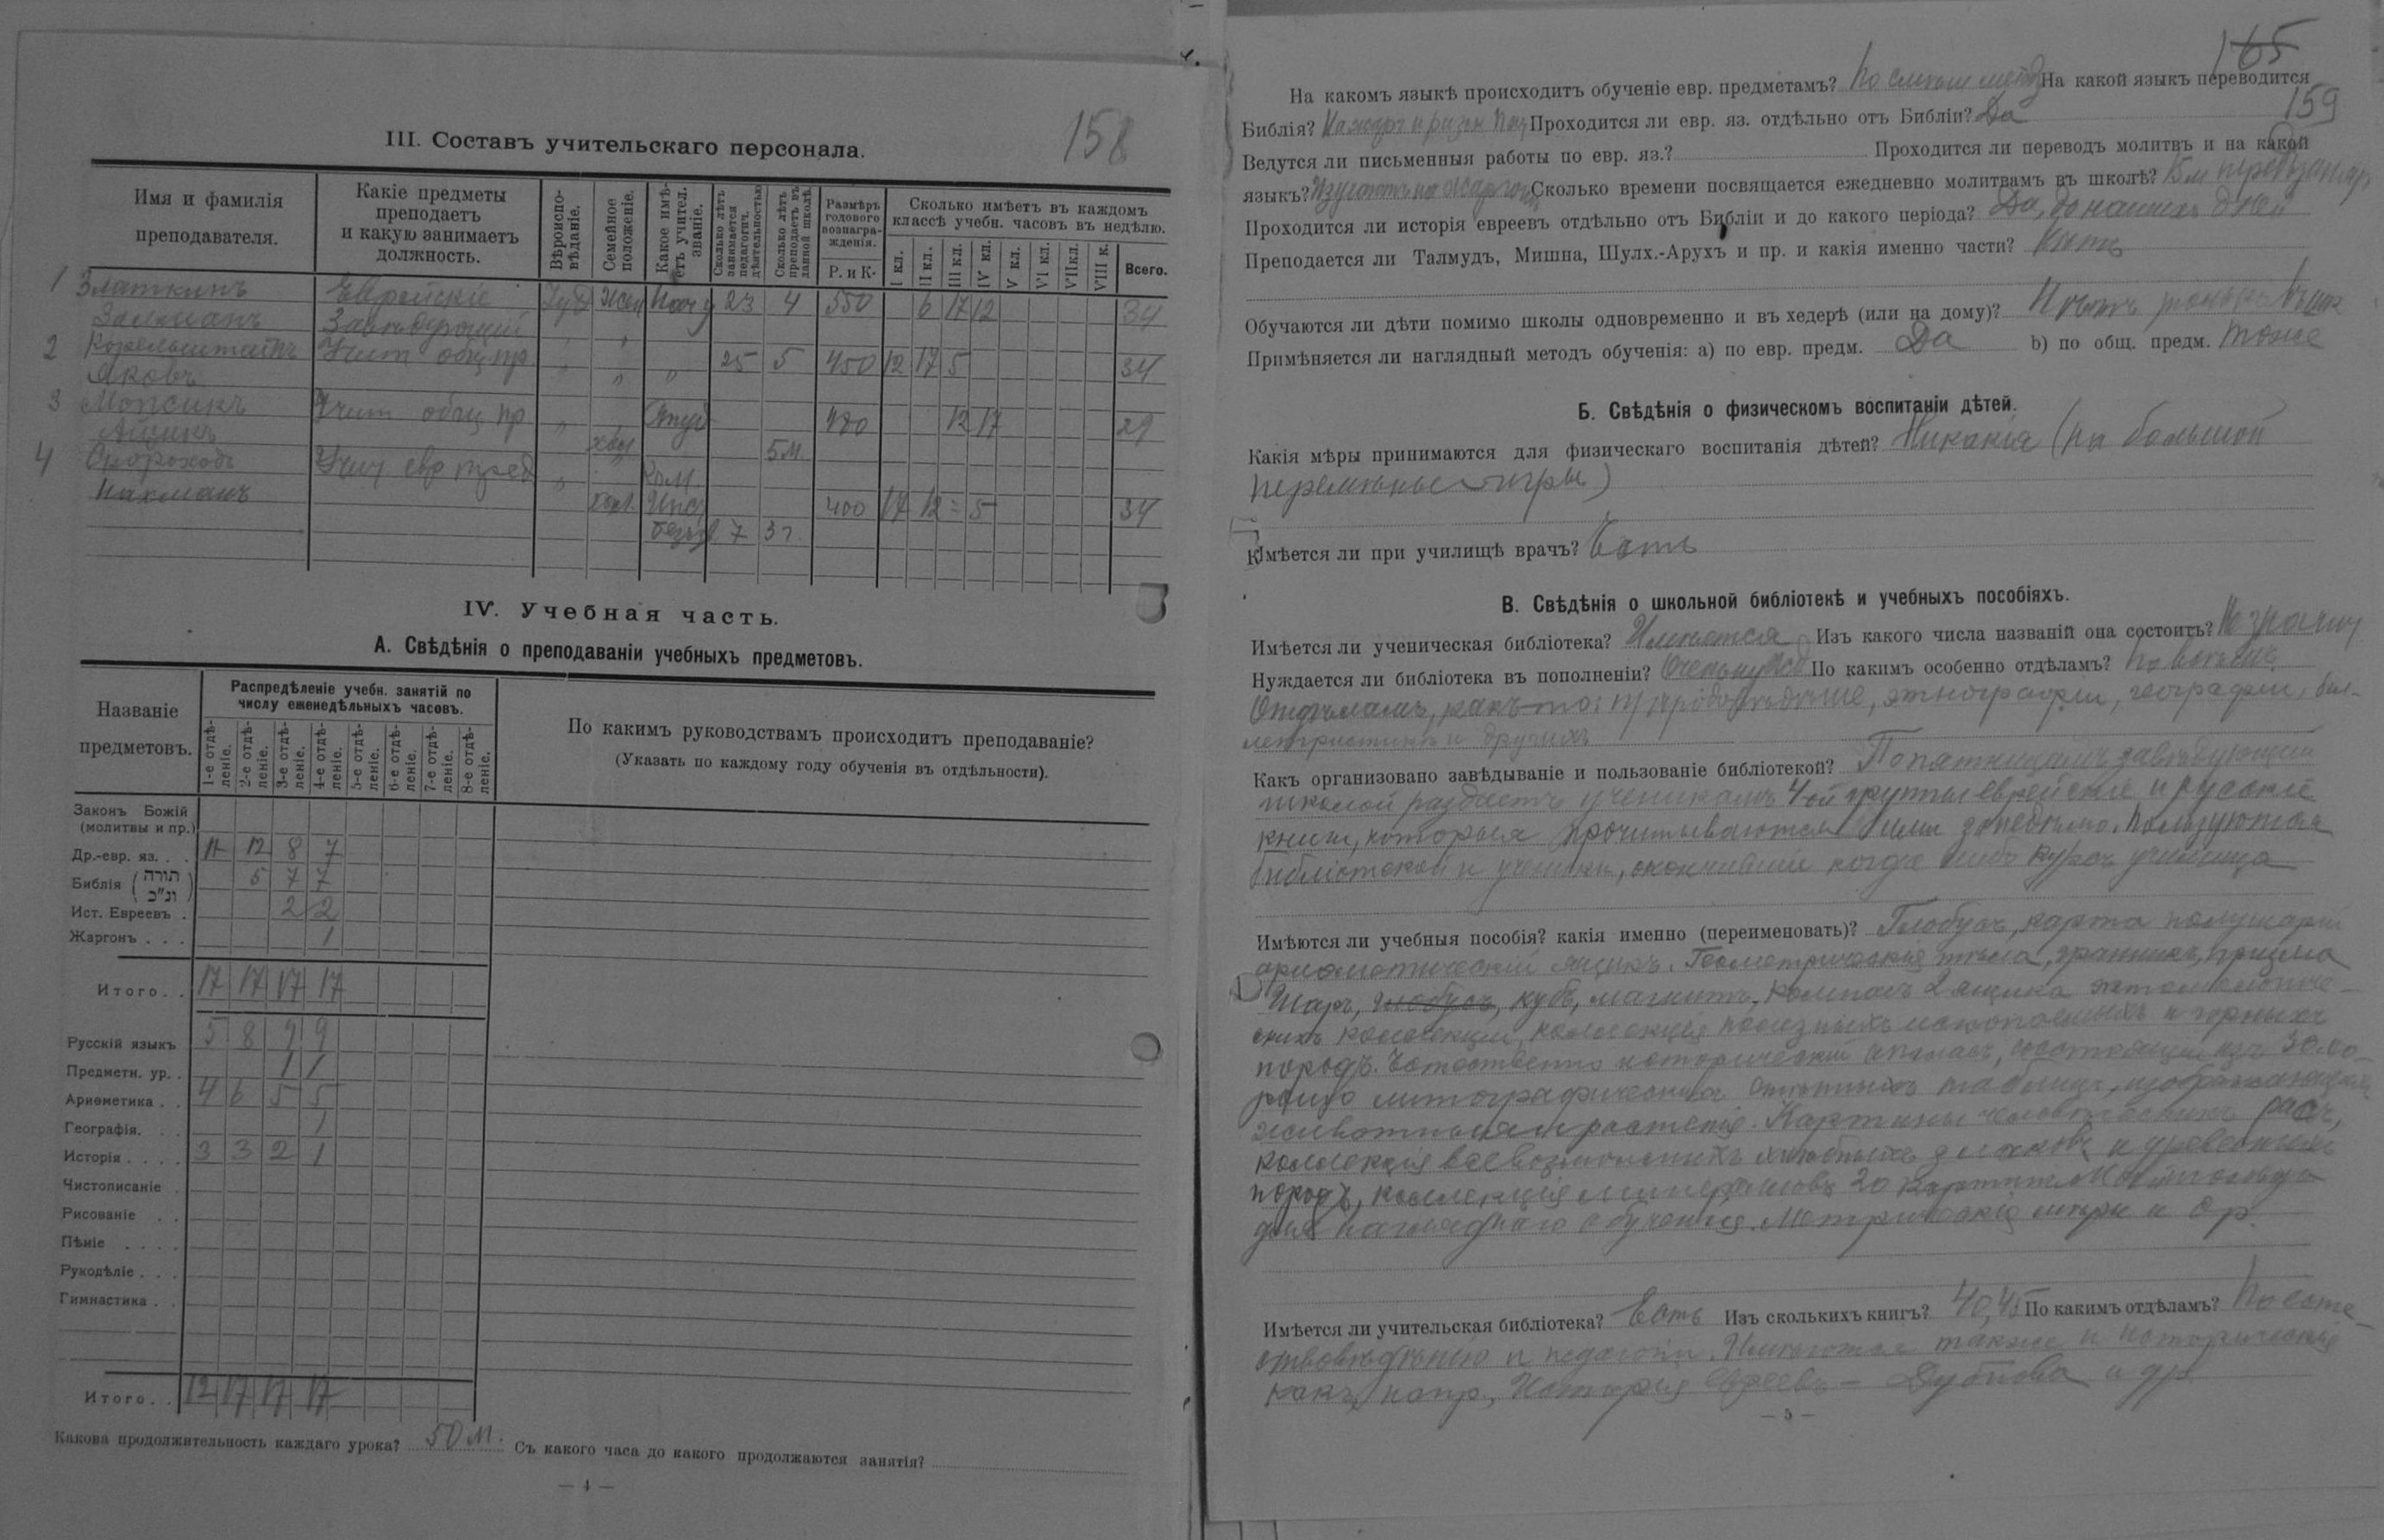 158
III. Составъ учительскаго персонала.
Имя и фамилія преподавателя.
Какіе предметы преподаетъ и какую занимаетъ должность.
Вѣроиспо-вѣданіе.
Семейное положеніе.
Какое имѣ-етъ учител. званіе.
Сколько лѣтъ занимается педагогич. дѣятельностью
Сколько лѣтъ преподаетъ въ данной школѣ.
Размѣръ годового вознагра-жденія.
Р. и К.
Сколько имѣетъ въ каждомъ классѣ учебн. часовъ въ недѣлю.
I кл. II кл. III кл. IV кл. V кл. VI кл. VII кл. VIII к. Всего.
1 Златкинъ Еврейскіе Іуд 23 4 550 6 17 12 34
Залманъ Завѣдующій
2 Корельштейнъ Учит общ пр „ „ „ 25 5 450 12 17 5 34
Яковъ
3 Мопсикъ Учит общ пр „ 480 12 17 29
Айцикъ хол 5 м
4 Скороходъ Учит евр пред „
Нахманъ хол. 400 17 12 = 5 34
7 3
IV. Учебная часть.
А. Свѣдѣнія о преподаваніи учебныхъ предметовъ.
Названіе предметовъ.
Распредѣленіе учебн. занятій по числу еженедѣльныхъ часовъ.
1-е отдѣ-леніе. 2-е отдѣ-леніе. 3-е отдѣ-леніе. 4-е отдѣ-леніе. 5-е отдѣ-леніе. 6-е отдѣ-леніе. 7-е отдѣ-леніе. 8-е отдѣ-леніе.
По какимъ руководствамъ происходитъ преподаваніе?
(Указать по каждому году обученія въ отдѣльности).
Законъ Божій
(молитвы и пр.)
Др.-евр. яз. . . 12 8 7
Библія (תורה ונ"כ) 5 7 7
Ист. Евреевъ . 2 2
Жаргонъ . . . 1
Итого. . 17 17 17 17
Русскій языкъ 5 8 9 9
Предметн. ур. . 1 1
Ариѳметика . . 4 6 5 5
Географія. . . 1
Исторія . . . . 3 3 2 1
Чистописаніе .
Рисованіе . .
Пѣніе . . . .
Рукодѣліе . . .
Гимнастика . .
Итого. . 12 17 17 17
Какова продолжительность каждаго урока? 50 м. Съ какого часа до какого продолжаются занятія?
— 4 —
165
159
На какомъ языкѣ происходитъ обученіе евр. предметамъ? На какой языкъ переводится
Библія? Проходится ли евр. яз. отдѣльно отъ Библіи? Да
Ведутся ли письменныя работы по евр. яз.? Проходится ли переводъ молитвъ и на какой
языкъ? Сколько времени посвящается ежедневно молитвамъ въ школѣ?
Проходится ли исторія евреевъ отдѣльно отъ Библіи и до какого періода? Да, до нашихъ дней
Преподается ли Талмудъ, Мишна, Шулх.-Арухъ и пр. и какія именно части? Нѣтъ
Обучаются ли дѣти помимо школы одновременно и въ хедерѣ (или на дому)? Нѣтъ
Примѣняется ли наглядный методъ обученія: а) по евр. предм. Да b) по общ. предм. Тоже
Б. Свѣдѣнія о физическомъ воспитаніи дѣтей.
Какія мѣры принимаются для физическаго воспитанія дѣтей? Никакія (на большой
перемѣнѣ игры)
Имѣется ли при училищѣ врачъ? Есть
В. Свѣдѣнія о школьной библіотекѣ и учебныхъ пособіяхъ.
Имѣется ли ученическая библіотека? Имѣется Изъ какого числа названій она состоитъ?
Нуждается ли библіотека въ пополненіи? По какимъ особенно отдѣламъ? По всѣмъ
Отдѣламъ, какъ-то: природовѣдѣніе, этнографіи, географіи, бел-
летристикѣ и другихъ
Какъ организовано завѣдываніе и пользованіе библіотекой? По пятницамъ завѣдующій
школой раздаетъ ученикамъ 4-ой группы еврейскіе и русскіе
книги, которыя прочитываются ими Пользуются
библіотекой и ученики, окончившіе когда либо курсъ училища
Имѣются ли учебныя пособія? какія именно (переименовать)? Глобусъ, карта полушарій
ариѳметическій ящикъ. Геометрическія тѣла, призма
Шаръ, глобусъ, кубъ, магнитъ, компасъ 2 ящика энтомологиче-
скихъ коллекцій, коллекція полезныхъ ископаемыхъ и горныхъ
породъ. Естественно историческій атласъ, состоящій изъ 30
литографическихъ таблицъ, изображающихъ
животныя и растенія. Картины человѣческихъ расъ,
коллекція всевозможныхъ хлѣбныхъ злаковъ и древесныхъ
породъ, коллекція минераловъ 20 картинъ
для нагляднаго обученія. Метрическія мѣры и др.
Имѣется ли учительская библіотека? Есть Изъ сколькихъ книгъ? 40,45 По какимъ отдѣламъ? По есте-
ствовѣдѣнію и педагогіи. Имѣются также и историческія
какъ, напр., Исторія евреевъ — Дубнова и др.
— 5 —